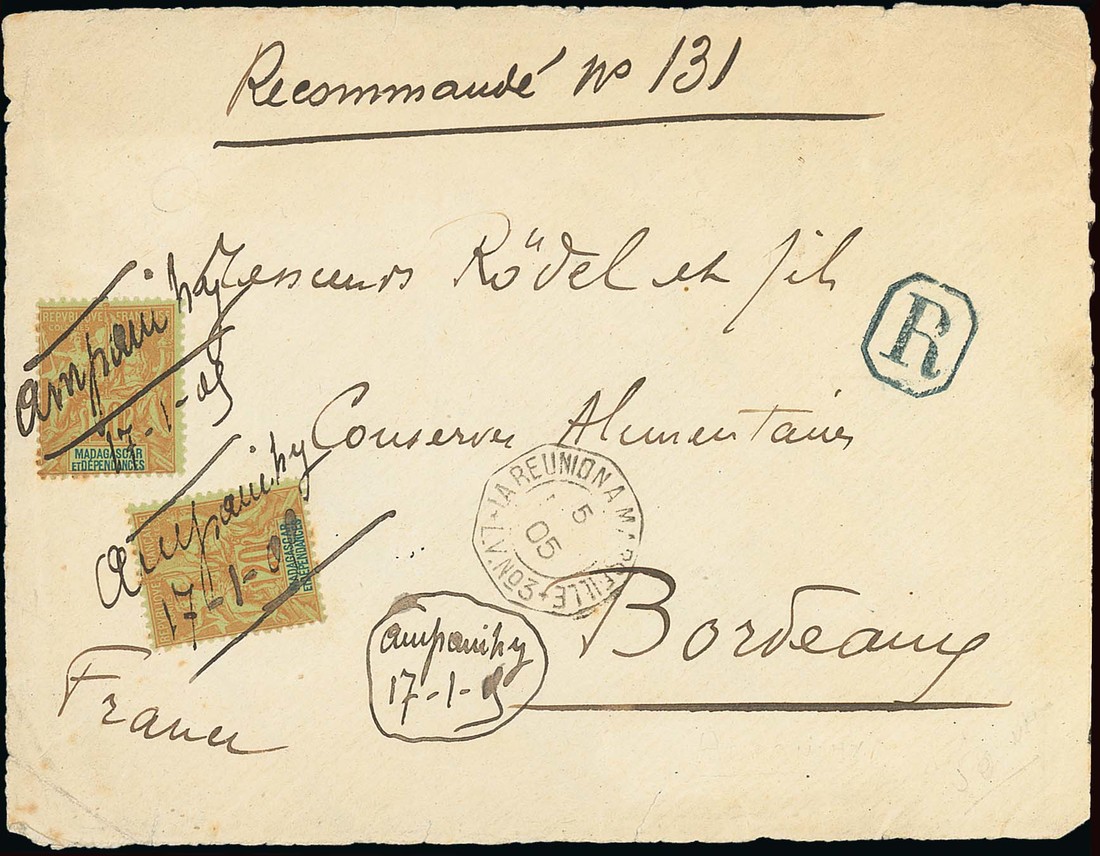 Recommandé No 131
Messieurs Rödel et fils
R
Ampanihy
17-1-05
REPUBLIQUE FRANÇAISE
COLONIES
MADAGASCAR
ET DÉPENDANCES
Conserves Alimentaires
Ampanihy
17-1-05
MADAGASCAR
ET DÉPENDANCES
LA REUNION A MARSEILLE
L.V. No 3
5
05
Bordeaux
Ampanihy
17-1-05
France